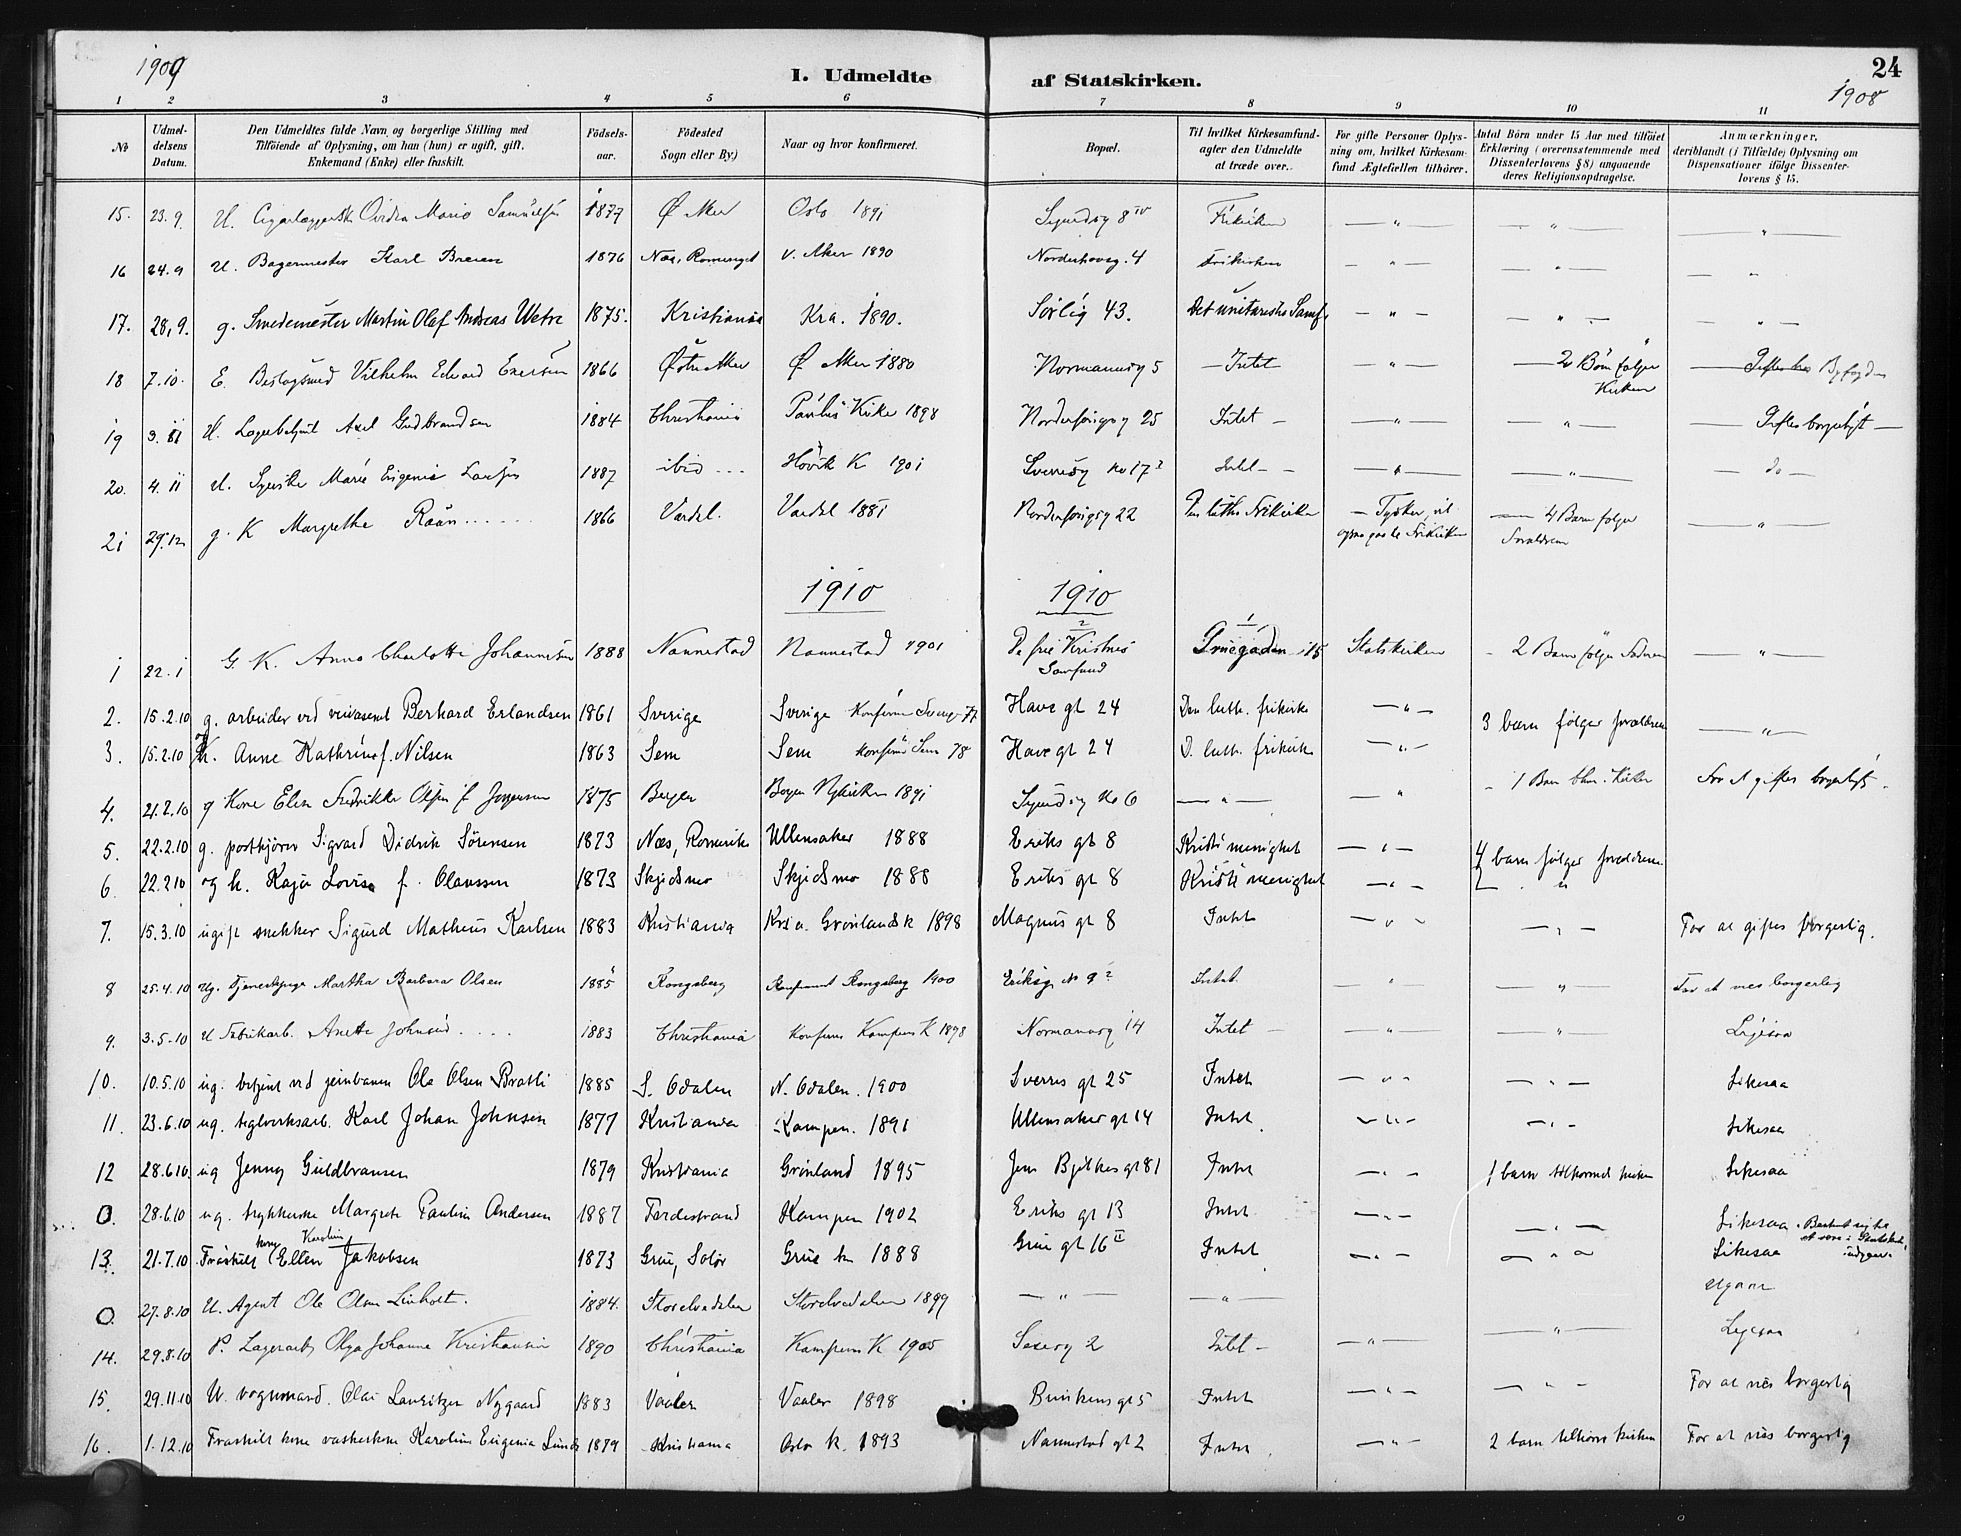 1909
I. Udmeldte af Statskirken.
24
1908
1 2 3 4 5 6 7 8 9 10 11
№
Udmeldelsens Datum.
Den Udmeldtes fulde Navn og borgerlige Stilling med
Tilföiende af Oplysning, om han (hun) er ugift, gift,
Enkemand (Enke) eller fraskilt.
Födselsaar.
Födested
Sogn eller By.)
Naar og hvor konfirmeret.
Bopæl.
Til hvilket Kirkesamfund
agter den Udmeldte
at træde over.
For gifte Personer Oplysning om, hvilket Kirkesamfund Ægtefællen tilhörer.
Antal Börn under 15 Aar med tilföiet
Erklæring (overensstemmende med
Dissenterlovens § 8) angaaende
deres Religionsopdragelse.
Anmærkninger,
deriblandt (i Tilfælde) Oplysning om
Dispensationer ifölge Dissenterlovens § 15.
15. 23.9. U. Maria Samuelsen 1877 Ø Aker Oslo 1891 Sigurdsg 8 IV Frikirken — " — — " — — " —
16 24.9 U. Bagermester Karl Breien 1876 Næs, Romeriget V. Aker 1890 Norderhovsg. 4 Frikirken — " — — " — — " —
17. 28.9. g. Smedemester Martin Olaf Andreas Wetre 1875. Kristiania Kra. 1890. Sørlig 43. Det unitariske Samf. — " — — " — — " —
18 7.10. E. Beslagsmed Vilhelm Edvard Evensen 1866 Østre Aker Ø Aker 1880 Normannsg 5 — Intet — " — — 2 Børn følger Kirken Giftes hos Byfogden
19 3.11 U. Lagerbetjent Axel Gudbrandsen 1884 Christiania Paulus Kirke 1898 Nordenfjeldsg 25 Intet — — " — — " — — Giftes borgerligt —
20. 4.11 U. Syerske Marie Eugenie Larsen 1887 ibid --- Høvik K 1901 Sverresg No 17² Intet — — — " — — " — — do —
21 29.12 g. K Margrethe Raan ...... 1866 Vardal. Vardal 1881 22 Den luthr Frikirke — Tysker, vil Frikirken — 4 Børn følger Forældrene — " —
1910 1910
1 22.1 G. K. Anna Charlotte Johannesen 1888 Nannestad Nannestad 1901 De frie Kristnes Samfund Gruegaden 15 Statskirken - 2 Børn følger Faderen — " —
2. 15.2.10 g. arbeider ved veivæsenet Berhard Erlandsen 1861 Sverige Sverige Konfirm Sverig 77 Have gt 24 Den luth. frikirke — " — 3 børn følger forældrene — " —
3. 15.2.10 og K. Anne Kathrine f. Nilsen 1863 Sem Sem konfirm Sem 78 Have gt 24 D. luth. frikirke — " —
4. 21.2.10 g Kone Elen Fredrikke Olsen f Jørgensen 1875 Bergen Bergen Nykirken 1891 Sigurdsg No 6 — " — — " - 1 Barn For at giftes borgerligt.
5. 22.2.10 g. postkjører Sigvard Didrik Sørensen 1873 Næs, Romerike Ullensaker 1888 Eriks gt 8 Kristi menighet — " — 4 barn følger forældrene
6. 22.2.10 og k. Kaja Lovise f. Olaussen 1873 Skjedsmo Skjedsmo 1888 Eriks gt 8 Kristi menighet — " — "
7. 15.3.10 ugift snekker Sigurd Matheus Karlsen 1883 Kristiania Kria. Grønlands k 1898 Magnus gt 8 Intet — " — — " — For at giftes borgerlig.
8 25.4.10 Ug. Tjenestepige Martha Barbara Olsen 1885 Kongsberg Konfirmert Kongsberg 1900 Eriksg. No 9² Intet — " — — " — For at vies borgerlig
9. 3.5.10 U Fabrikarb. Anette Johnsrud .... 1883 Christiania Konfirm Kampens K 1898 Normannsg 14 Intet — — " — — " — Ligesaa
10. 10.5.10 ug. betjent ved jernbanen Ole Olsen Bratli 1885 S. Odalen N. Odalen. 1900 Sverres gt 25 Intet — " — — " — Likesaa
11. 23.6.10 ug. teglverksarb. Karl Johan Johnsen 1877 Kristiania Kampen. 1891 Ullensaker gt 14 Intet. — " — — " — Likesaa
12 28.6.10. ug Jenny Guldbransen 1879 Kristiania Grønland 1895 Jens Bjelkes gt 81 Intet — " — 1 barn tilhørende kirken Likesaa
0. 28.6.10 ug. trykkerske Margrete Pauline Andersen 1887 Ferdestrand Kampen 1902 Eriks gt 13 Intet — " — — " — Likesaa. Bestemt sig til at være i Statskirken
13. 21.7.10 Fraskilt kone Ellen Karoline Jakobsen 1873 Grue, Solør Grue k. 1888 Grue gt 16 II Intet — " — — " — Likesaa
0. 27.8.10 U. Agent Ole Olsen Linholt. 1884. Storelvedalen Storelvedalen 1899 — " — — " — Utgaar
14. 29.8.10 P. Lagerarb. Olga Johanne Kristiansen 1890 Christiania Kampens K 1905 2 Intet — — " — — " — Ligesaa
15. 29.11.10 U. vognmand. Olai Lauritzen Nygaard 1883 Vaaler Vaaler 1898 gt 5 Intet — " — — " — For at vies borgerlig
16. 1.12.10 Fraskilt kone vaskerkone Karoline Eugenia Lunde 1879 Kristiania Oslo k. 1893 Nannestad gt 2 Intet. — " — 2 barn tilhører kirken For at vies borgerlig